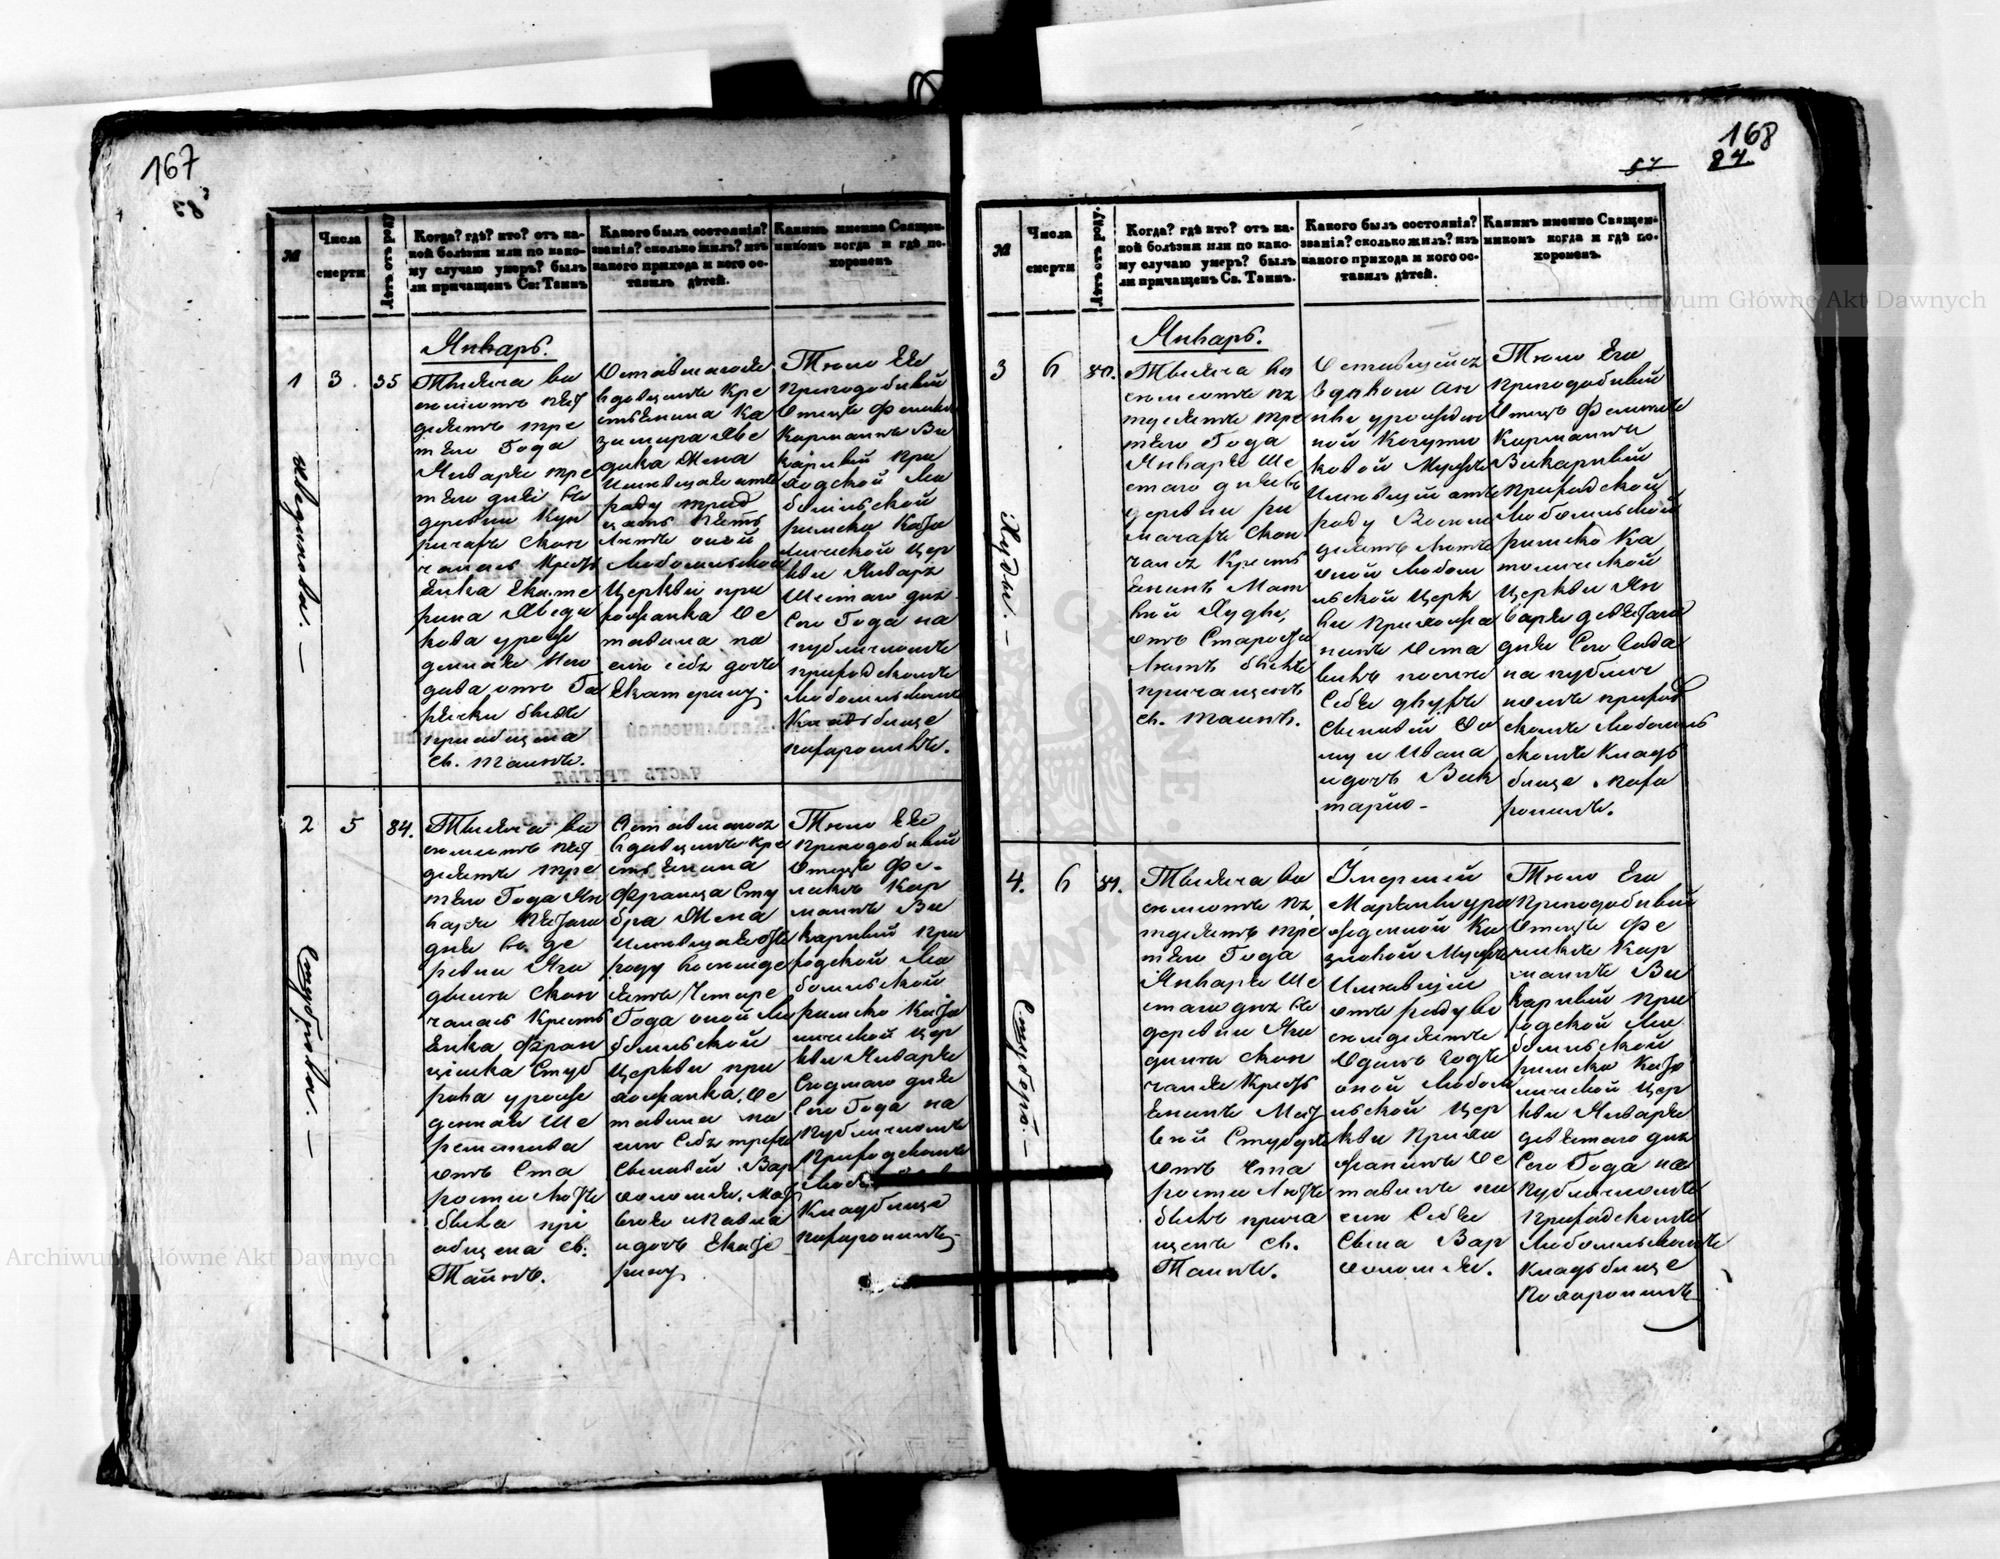 167
168
84
Archiwum Główne Akt Dawnych
№
Числа
смерти
Лѣтъ отъ роду
Когда? гдѣ? кто? отъ ка-
кой болѣзни или по како-
му случаю умеръ? былъ
ли причащенъ Св: Таинъ
Какого былъ состоянія?
званія? сколько жилъ? изъ
какого прихода и кого ос-
тавилъ дѣтей.
Какимъ именно Священ-
никомъ когда и гдѣ по-
хороненъ
Январь.
1
3.
35
Тысяча во
семьсотъ пят
десятъ тре
тьяго Года
Января тре
тьяго дня въ
деревни
чалась Крест
янка Екате
рина
кова урожде
денная
дава отъ Го
рячки бывъ
приобщена
Св. Таинъ.
Оставшагося
вдовцемъ Кре
стьянина Ка
зимира
Жена
Имевшая отъ
роду трид
цать пять
лѣтъ оной
Любомльской
Церкви при
хожанка Ос
тавила по
сей себя дочь
Екатерину.
Тѣло Ея
Преподобный
Отецъ Феликсъ
Карманнъ Ви
карный При
ходской Лю
бомльской
римско Като
лической Цер
кви Января
Шестаго дня
Сего Года на
публичномъ
приходскомъ
Любомльскомъ
Кладбище
похоронилъ.
2
5
84.
Тысяча во
семьсотъ пят
десятъ тре
тьяго Года Ян
варя Пятаго
дня въ де
ревни Яго
дына Скон
чалась Крест
янка Фран
цишка Стуб
рова урож
денная Ше
отъ Ста
рости лѣтъ
бывъ прі
общена Св.
Таинъ.
Оставшагося
вдовцемъ Кре
стьянина
Францa Сту
бра Жена
Имевшая отъ
роду восемьде
сятъ Четыре
Года оной Лю
бомльской
Церкви при
хожанка, Ос
тавила по
сей Себя трехъ
Сыновей Вар
фоломея, Мат
вея и Павла
и дочь Екате
рину
Тѣло Ея
Преподобный
Отецъ Фе-
ликсъ Кар
манъ Ви
карный При
ходской Лю
бомльской
римско Като
лической Цер
кви Января
Седьмаго дня
Сего Года на
Публичномъ
Приходскомъ
Кладбище
похоронилъ.
Archiwum Główne Akt Dawnych
№
Числа
смерти
Лѣтъ отъ роду.
Когда? гдѣ? кто? отъ ка-
кой болѣзни или по како-
му случаю умеръ? былъ
ли причащенъ Св. Таинъ.
Какого былъ состоянія?
званія? сколько жилъ? изъ
какого прихода и кого ос-
тавилъ дѣтей.
Какимъ именно Священ-
никомъ когда и гдѣ по-
хороненъ
Январь.
3
6
80.
Тысяча во
семьсотъ пя
тдесятъ тре
тьяго Года
Января Ше
стаго дня въ
деревни
Скон
чался Крест
янинъ Мат
вей
отъ Старости
лѣтъ бывъ
причащенъ
Св. таинъ.
Оставшейся
Вдовою Ан
ны урожден
ной
ковой Мужъ
Имевшій отъ
роду Восемь
десятъ лѣтъ
оной Любом
льской Церк
ви Прихожа
нинъ Оста
вилъ после
Себя двухъ
Сыновей
му и Ивана
и дочь Вик
торію -
Тѣло Его
Преподобный
Отецъ Феликсъ
Карманнъ
Викарный
Приходской
Любомльской
римско Ка
толической
Церкви Ян
варя девятаго
дня Сего Года
на публич
номъ приход
скомъ Любомль
скомъ Клад
бище похо
ронилъ.
4.
6
81.
Тысяча во
семьсотъ пя
тдесятъ тре
тьяго Года
Января Ше
стаго дня въ
деревни Яго
дына Скон
чался Крест
янинъ Мат
вей
отъ Ста
рости лѣтъ
бывъ прича
щенъ Св.
Таинъ.
Умершей
Маріанны уро
жденной
Мужъ
Имевшій
отъ роду во
семдесятъ
Одинъ Годъ
оной Любом
льской Цер
кви Прихо
жанинъ Ос
тавилъ по
сей Себя
Сына Вар
фоломея.
Тѣло Его
Преподобный
Отецъ Фе
ликсъ Кар
манъ Ви
карный При
ходской Лю
бомльской
римско Като
лической Цер
кви Января
девятаго дня
Сего Года на
Публичномъ
Приходскомъ
Любомльскомъ
Кладбище
Похоронилъ